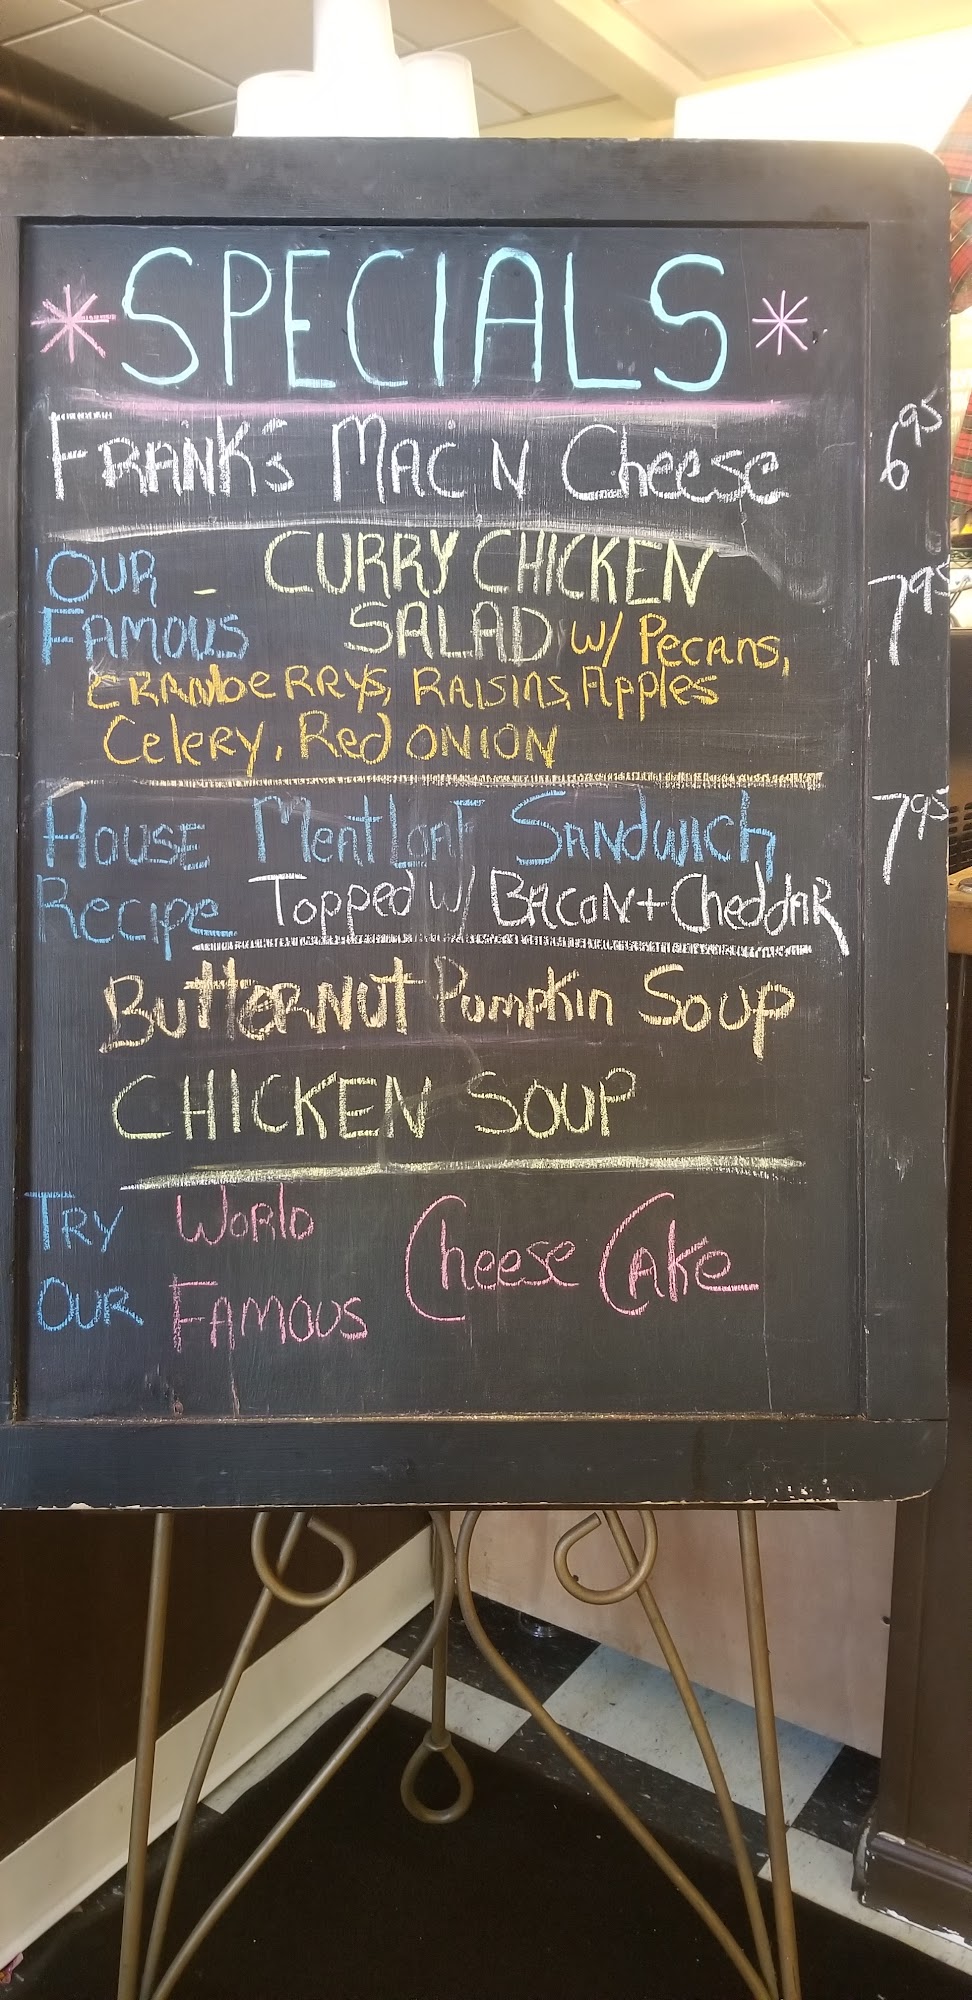 * SPECIALS *
FRANK's MAC N Cheese 6.95
OUR - CURRY CHICKEN 7.95
FAMOUS SALAD w/ Pecans,
CRANbeRRYS, RAISINS, Apples
Celery, Red ONION
House MeatLoaf Sandwich 7.95
Recipe Topped w/ BACON + CheddAR
ButterNut Pumpkin Soup
CHICKEN SOUP
TRY WORLD Cheese Cake
OUR FAMOUS